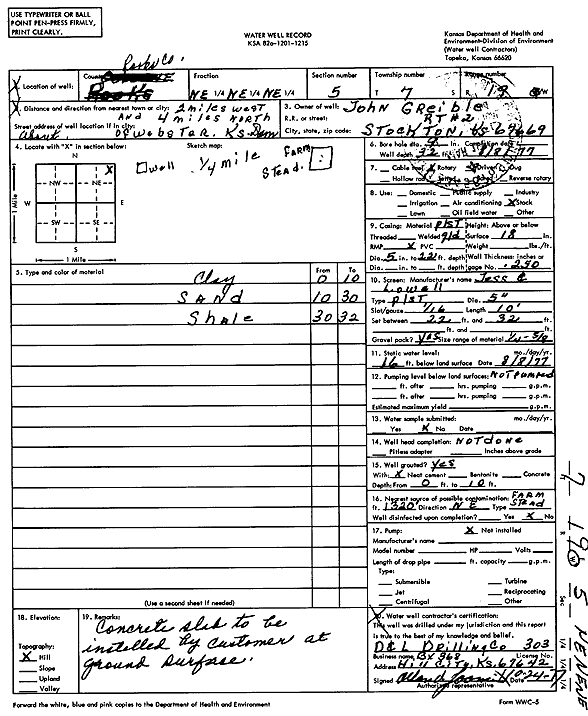 USE TYPEWRITER OR BALL
POINT PEN-PRESS FIRMLY,
PRINT CLEARLY.
WATER WELL RECORD
KSA 82a-1201-1215
Kansas Department of Health and
Environment-Division of Environment
(Water well Contractors)
Topeka, Kansas 66620
Rooks Co.
1. Location of well:
County
Rooks
Fraction
NE 1/4 NE 1/4 NE 1/4
Section number
5
Township number
T 7 S
Range number
R 19 W
2. Distance and direction from nearest town or city: 2 miles west
AND 4 miles NORTH
Street address of well location if in city:
about OF Webster, KS Dam
3. Owner of well: John Greible
R.R. or street: RT #2
City, state, zip code: STOCKTON, KS 67669
4. Locate with "X" in section below:
N
NW NE X
W E
SW SE
S
1 Mile
1 Mile
Sketch map:
well 1/4 mile FARM
STEAD.
5. Type and color of material
From To
Clay 0 10
SAND 10 30
Shale 30 32
(Use a second sheet if needed)
6. Bore hole dia. 9 in. Completion date
Well depth 32 ft. 8/8/77
7. Cable tool X Rotary Driven Dug
Hollow rod Jetted Bored Reverse rotary
8. Use: Domestic Public supply Industry
Irrigation Air conditioning X Stock
Lawn Oil field water Other
9. Casing: Material plst Height: Above or below
Threaded Welded gld Surface 18 in.
RMP X PVC Weight lbs./ft.
Dia. 5 in. to 22 ft. depth Wall Thickness: inches or
Dia. in. to ft. depth gage No. .250
10. Screen: Manufacturer's name Jess &
Lowell
Type plst Dia. 5"
Slot/gauze 1/16 Length 10'
Set between 22 ft. and 32 ft.
ft. and ft.
Gravel pack? yes Size range of material 1/4-5/8
11. Static water level: mo./day/yr.
16 ft. below land surface Date 8/8/77
12. Pumping level below land surfaces: NOT Pumped
ft. after hrs. pumping g.p.m.
ft. after hrs. pumping g.p.m.
Estimated maximum yield g.p.m.
13. Water sample submitted: mo./day/yr.
Yes X No Date
14. Well head completion: NOT done
Pitless adapter Inches above grade
15. Well grouted? yes
With: X Neat cement Bentonite Concrete
Depth: From 0 ft. to 10 ft.
16. Nearest source of possible contamination: FARM
STEAD
ft. 1320' Direction NE Type
Well disinfected upon completion? Yes X No
17. Pump: X Not installed
Manufacturer's name
Model number HP Volts
Length of drop pipe ft. capacity g.p.m.
Type:
Submersible Turbine
Jet Reciprocating
Centrifugal Other
18. Elevation:
Topography:
X Hill
Slope
Upland
Valley
19. Remarks:
Concrete slab to be
installed by customer at
ground surface.
20. Water well contractor's certification:
This well was drilled under my jurisdiction and this report
is true to the best of my knowledge and belief.
D&L Drilling Co 303
Business name Bx 968 License No.
Address Hill City, KS. 67642
Signed Date 10-24-77
Authorized representative
Forward the white, blue and pink copies to the Department of Health and Environment
Form WWC-5
7 19 W 5 NENENE